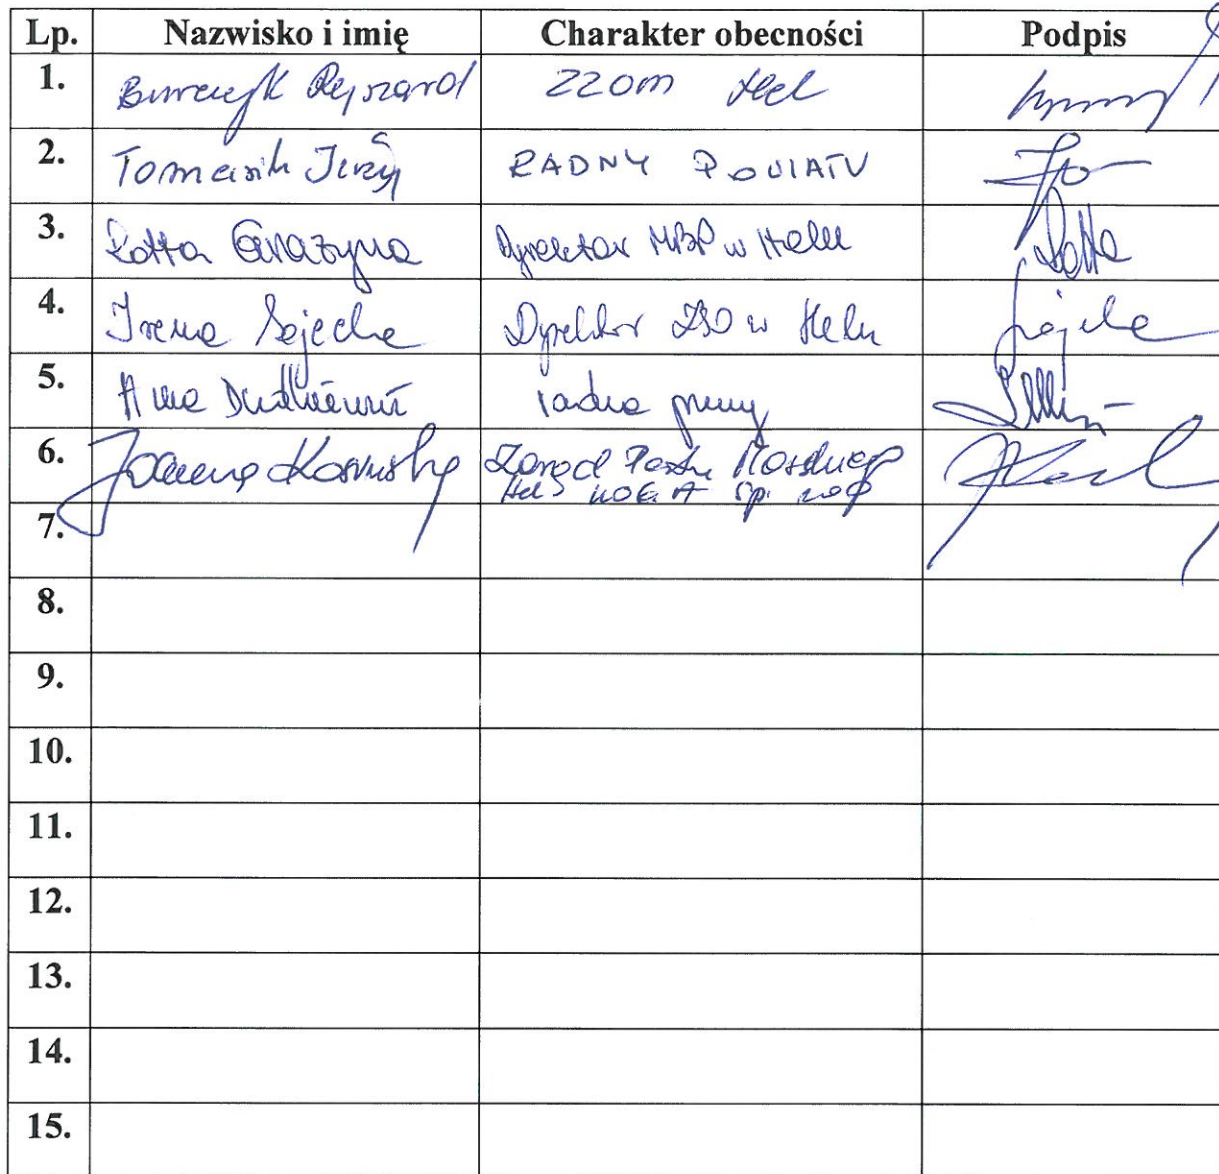 Lp. Nazwisko i imię Charakter obecności Podpis
1. Burczyk Ryszard ZZOM Hel
2. Tomasik Jerzy RADNY POWIATU
3. Rotta Grażyna Dyrektor MBP w Helu Rotta
4. Irena Sejecha Dyrektor ZSO w Helu
5. Anna radna
6. Joanna Zarząd Portu Morskiego
Hel KOGA Sp. z o.o.
7.
8.
9.
10.
11.
12.
13.
14.
15.